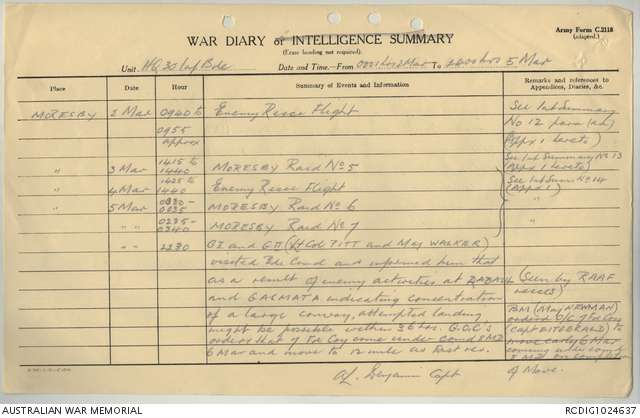 Army Form C.2118
(adapted.)
WAR DIARY or INTELLIGENCE SUMMARY
(Erase heading not required).
Unit HQ 30 Inf Bde Date and Time—From 0001 hrs 2 Mar To 2400 hrs 5 Mar
Place Date Hour Summary of Events and Information Remarks and references to Appendices, Diaries, &c.
MORESBY 2 Mar 0940 to Enemy Recce Flight See Int Summary
0955 No 12 para (aa)
Approx Appx 1
" 3 Mar 1415 to 1440 MORESBY Raid No 5 See Int Summary No 13
" 4 Mar 1425 to 1440 Enemy Recce Flight See Int Summ No 14
(Appx 1)
" 5 Mar MORESBY Raid No 6 "
0235-0240 MORESBY Raid No 7 "
" " 2230 GI and GII (Lt Col PITT and Maj WALKER)
visited Bde Comd and informed him that
as a result of enemy activities at RABAUL (Seen by RAAF
and GASMATA indicating concentration recces)
of a large convoy, attempted landing BM (Maj NEWMAN)
might be possible within 36 hrs. G.O.C's
orders that 7 Fd Coy come under comd (Capt FITZGERALD) to
6 Mar and move to 12 mile as fast res. move early 6 Mar
Capt of Move.
AUSTRALIAN WAR MEMORIAL RCDIG1024637